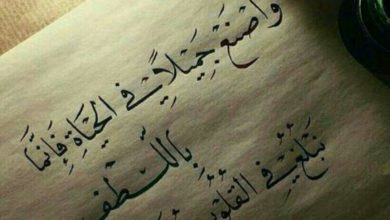 وَاصْنَعْ جَمِيلاً فِي الحَيَاةِ فَإِنَّمَا
بِاللُّطْفِ
نَبْلُغُ فِي